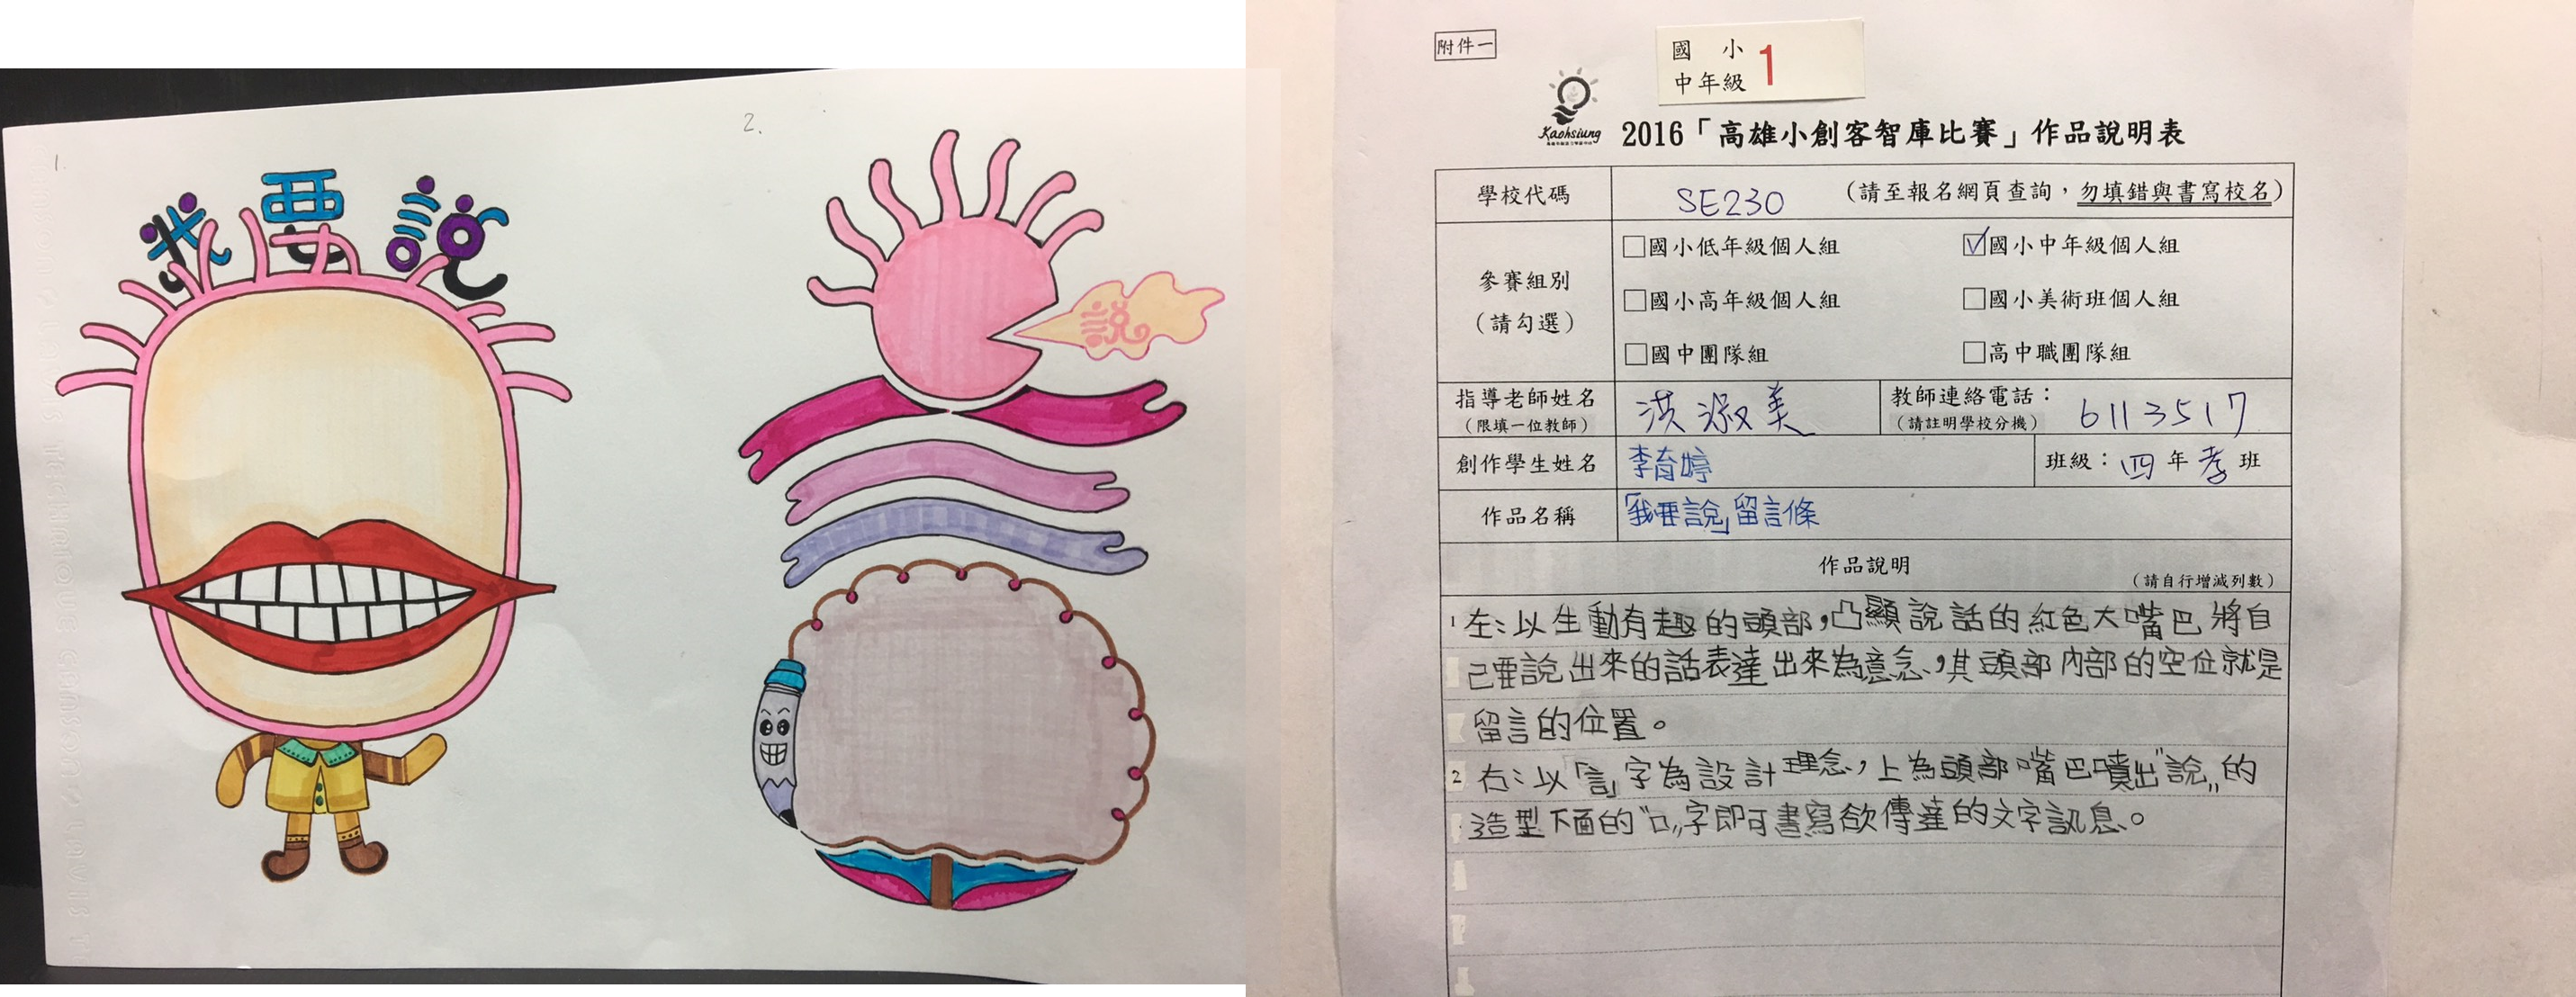 1.
我要說
2.
說
附件一
國小
中年級 1
Kaohsiung
2016「高雄小創客智庫比賽」作品說明表
學校代碼 SE230 (請至報名網頁查詢，勿填錯與書寫校名)
參賽組別
(請勾選)
□國小低年級個人組 ☑國小中年級個人組
□國小高年級個人組 □國小美術班個人組
□國中團隊組 □高中職團隊組
指導老師姓名 洪淑美 教師連絡電話：6113517
(限填一位教師) (請註明學校分機)
創作學生姓名 李育婷 班級：四年孝班
作品名稱 「我要說」留言條
作品說明
(請自行增減列數)
1 左：以生動有趣的頭部，凸顯說話的紅色大嘴巴將自
己要說出來的話表達出來為意念，其頭部內部的空位就是
留言的位置。
2 右：以「言」字為設計理念，上為頭部嘴巴噴出"說"的
造型下面的"口"字即可書寫欲傳達的文字訊息。